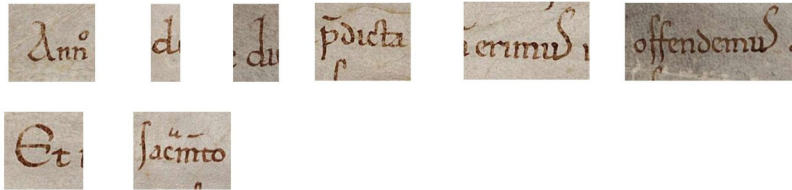 Ann̊ d e du p̄dicta erimuſ offendemuſ
Et ſac̄m̄to